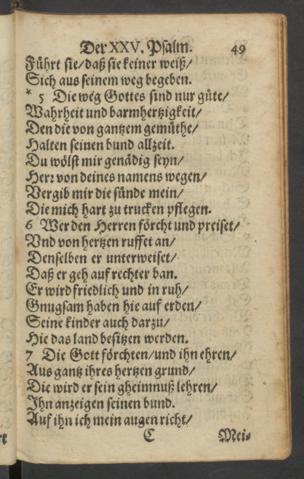 Der XXV. Psalm. 49
Führt sie/ daß sie keiner weiß/
Sich aus seinem weg begeben.
* 5 Die weg Gottes sind nur güte/
Wahrheit und barmhertzigkeit/
Den die von gantzem gemüthe/
Halten seinen bund allzeit.
Du wölst mir genädig seyn/
Herr von deines namens wegen/
Vergib mir die sünde mein/
Die mich hart zu trucken pflegen.
6 Wer den Herren förcht und preiset/
Vnd von hertzen ruffet an/
Denselben er unterweiset/
Daß er geh auf rechter ban.
Er wird friedlich und in ruh/
Gnugsam haben hie auf erden/
Seine kinder auch darzu/
Hie das land besitzen werden.
7 Die Gott förchten/ und ihn ehren/
Aus gantz ihres hertzen grund/
Die wird er sein gheimnuß lehren/
Ihn anzeigen seinen bund.
Auf ihn ich mein augen richt/
C Mei-